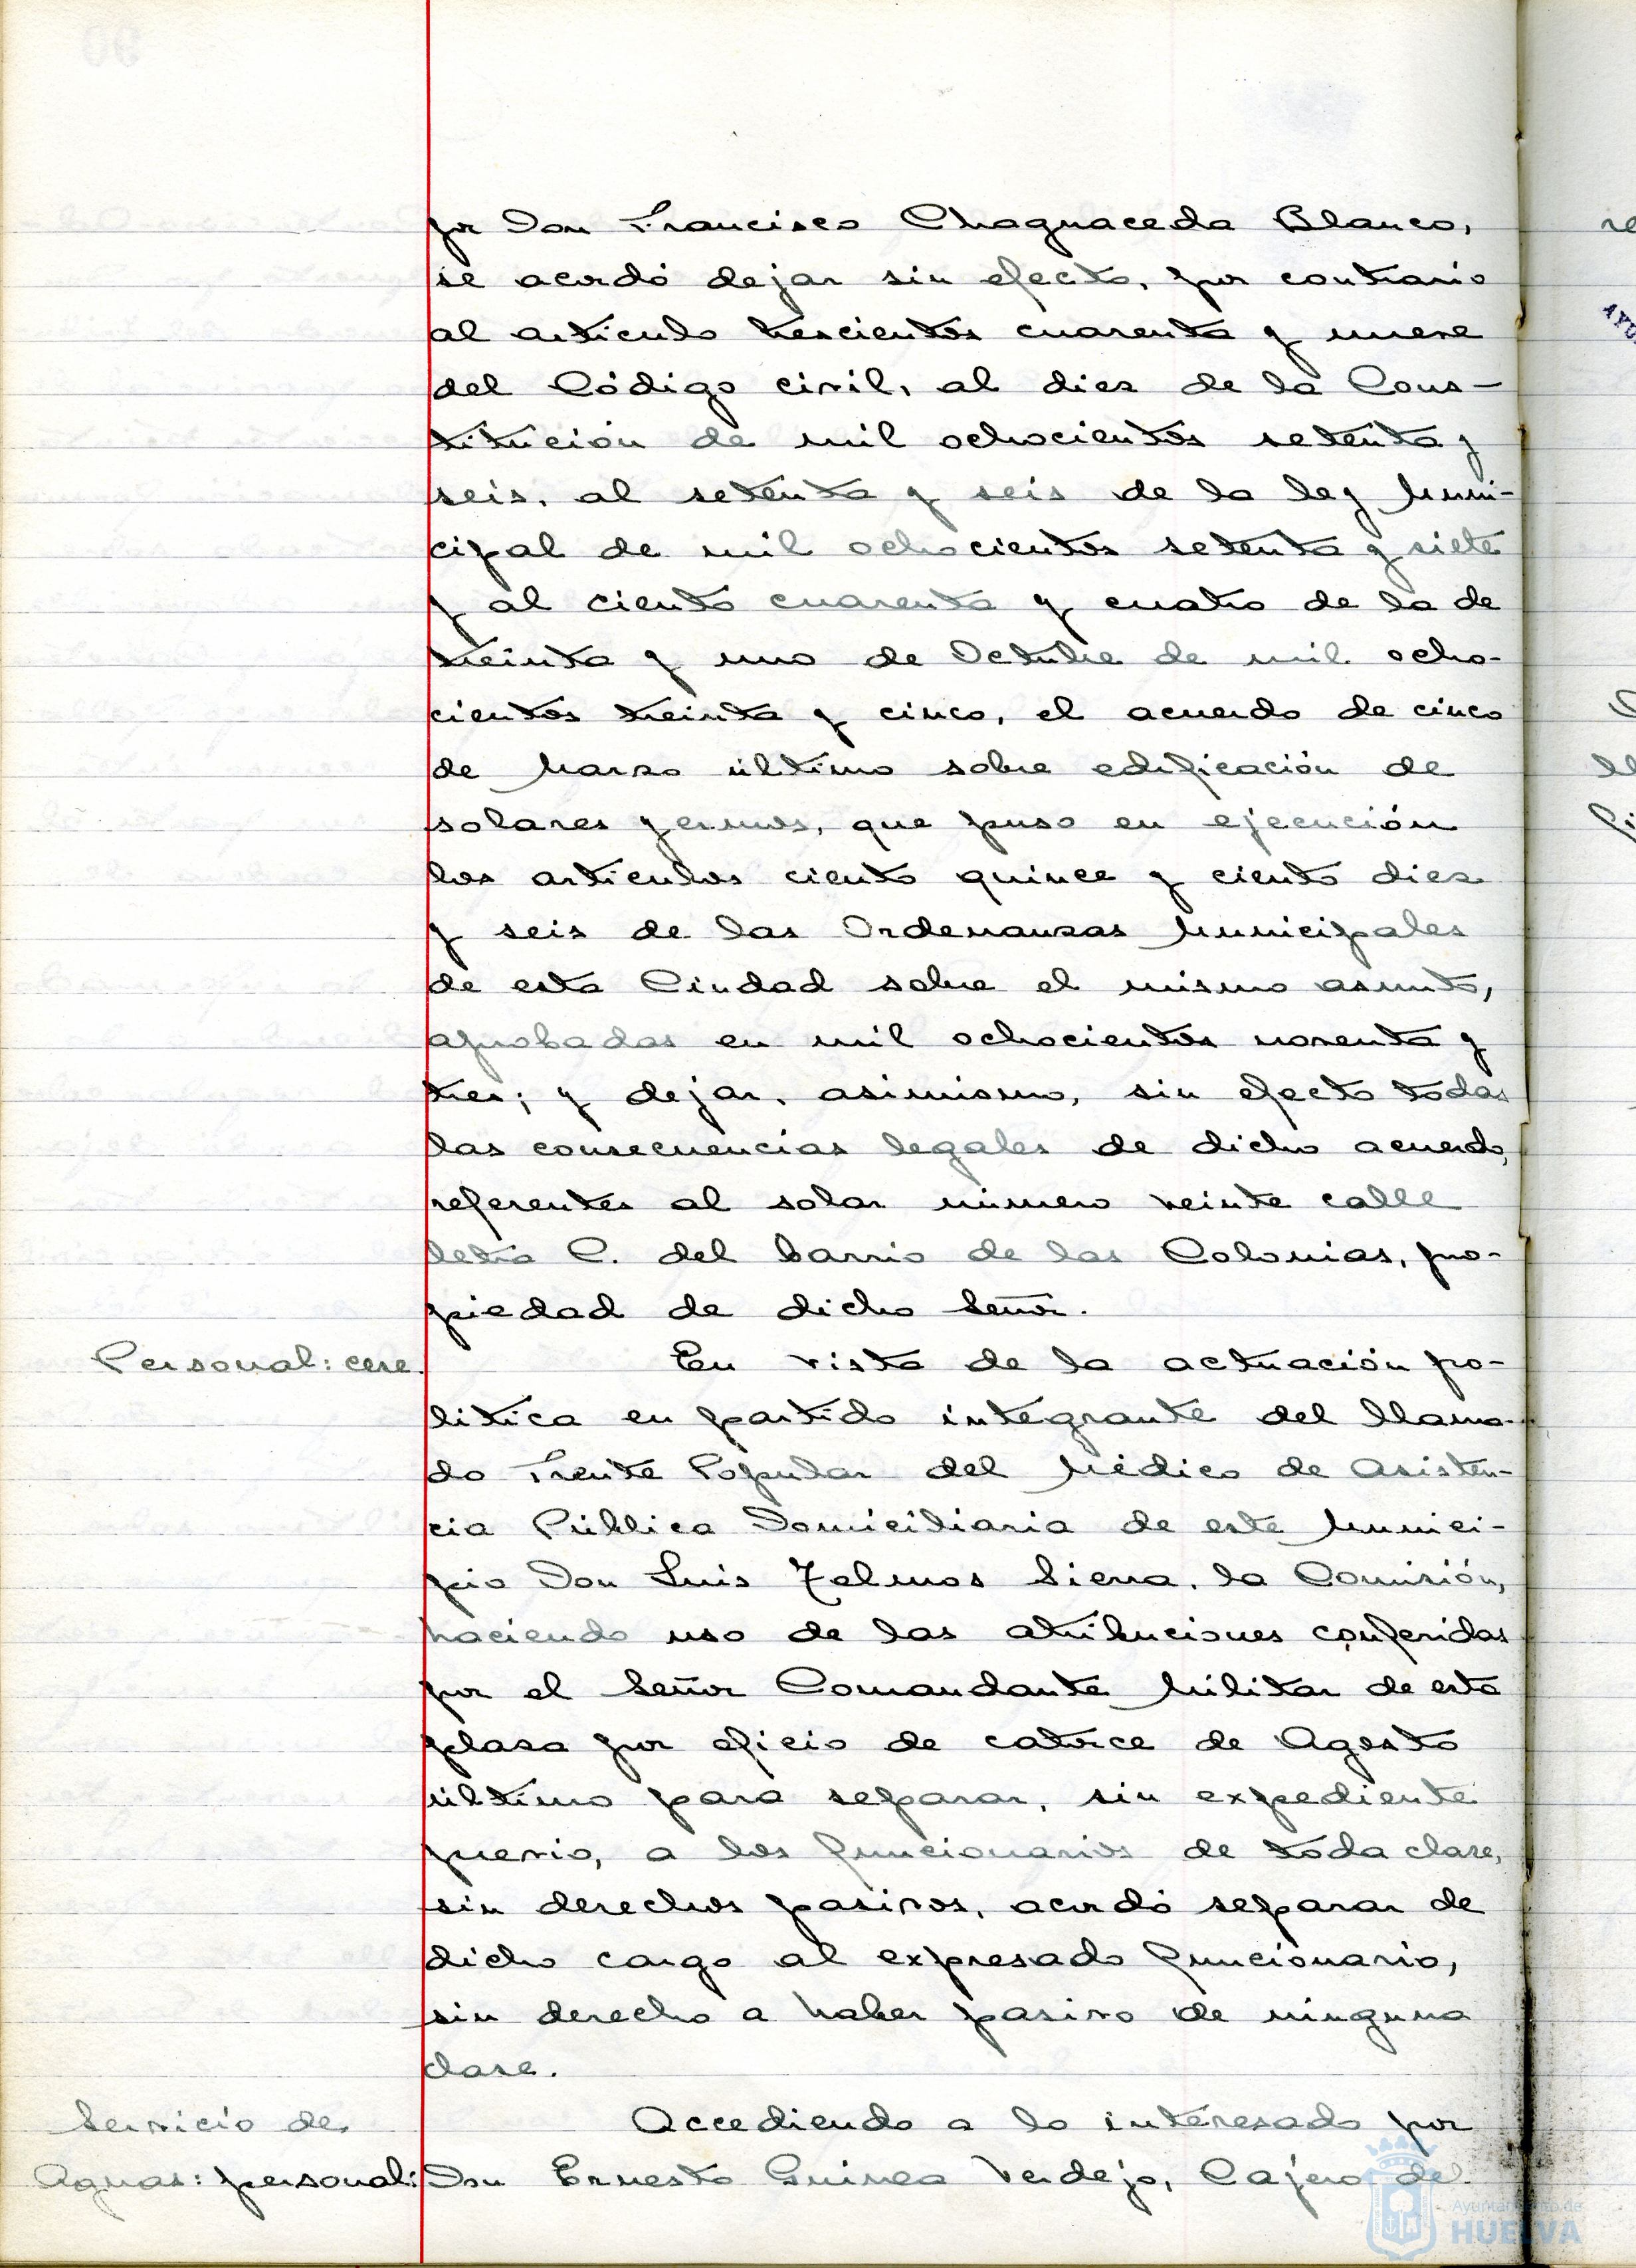 por Don Francisco Chaguaceda Blanco,
se acordó dejar sin efecto, por contrario
al artículo trescientos cuarenta y nueve
del Código civil, al diez de la Cons-
titución de mil ochocientos setenta y
seis, al setenta y seis de la ley Muni-
cipal de mil ochocientos setenta y siete
y al ciento cuarenta y cuatro de la de
treinta y uno de Octubre de mil ocho-
cientos treinta y cinco, el acuerdo de cinco
de Marzo último sobre edificación de
solares yermos, que puso en ejecución
los artículos ciento quince y ciento diez
y seis de las Ordenanzas Municipales
de esta Ciudad sobre el mismo asunto,
aprobadas en mil ochocientos noventa y
tres; y dejar, asimismo, sin efecto todas
las consecuencias legales de dicho acuerdo,
referentes al solar número veinte calle
letra C. del barrio de las Colonias, pro-
piedad de dicho Señor.
Personal: cese.
En vista de la actuación po-
lítica en partido integrante del llama-
do Frente Popular del Médico de Asisten-
cia Pública Domiciliaria de este Munici-
pio Don Luis Sierra, la Comisión,
haciendo uso de las atribuciones conferidas
por el Señor Comandante Militar de esta
plaza por oficio de catorce de Agosto
último para separar, sin expediente
previo, a los funcionarios de toda clase,
sin derechos pasivos, acordó separar de
dicho cargo al expresado funcionario,
sin derecho a haber pasivo de ninguna
clase.
Servicio de
Aguas: personal:
Accediendo a lo interesado por
Don Ernesto Guinea Verdejo, Cajero del
Ayuntamiento de
HUELVA